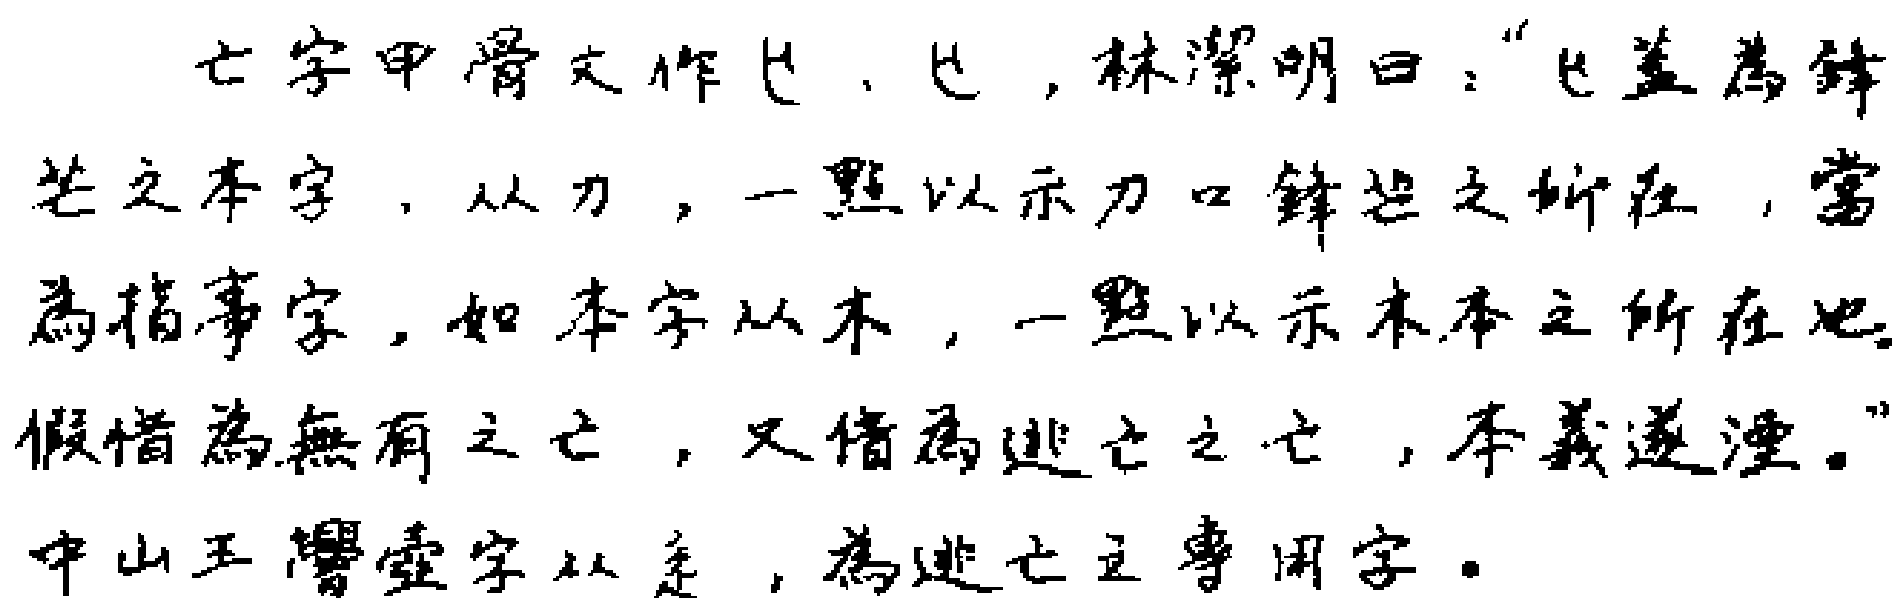 亡字甲骨文作、,林潔明曰:“蓋為鋒
芒之本字.从刀,一點以示刀口鋒芒之所在,當
為指事字,如本字从木,一點以示木本之所在也.
假借為無有之亡,又借為逃亡之亡,本義遂湮.”
中山王壺字从辵,為逃亡之專用字.